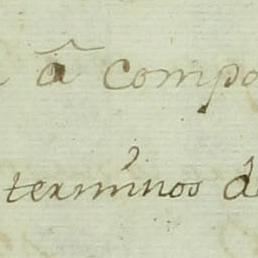 â compo
terminos d